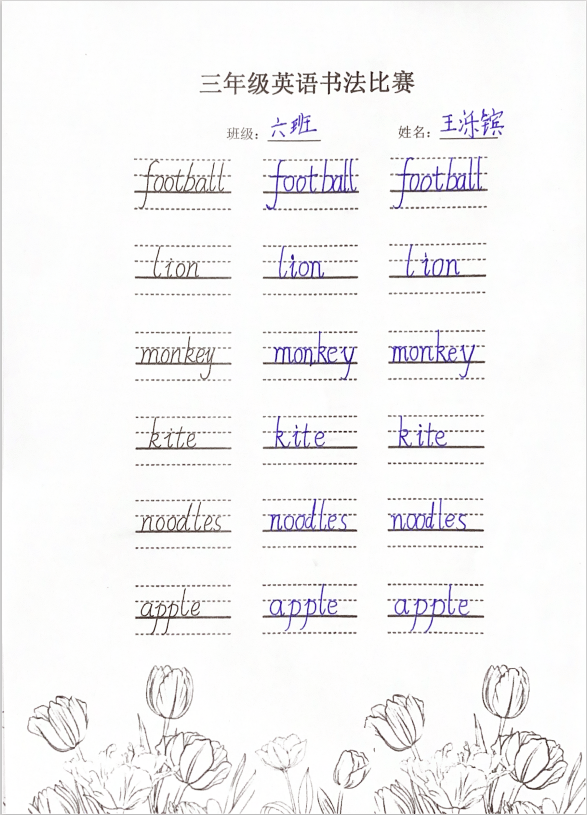 三年级英语书法比赛
班级：六班 姓名：王泺镔
football football football
lion lion lion
monkey monkey monkey
kite kite kite
noodles noodles noodles
apple apple apple